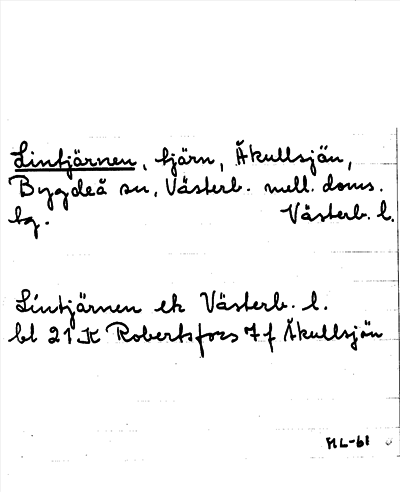 Lintjärnen, tjärn, Åkullsjön,
Bygdeå sn, Västerb. mell. doms.
tg. Västerb. l.
Lintjärnen ek Västerb. l.
bl 21 K Robertsfors 7 f Åkullsjön
ML-61